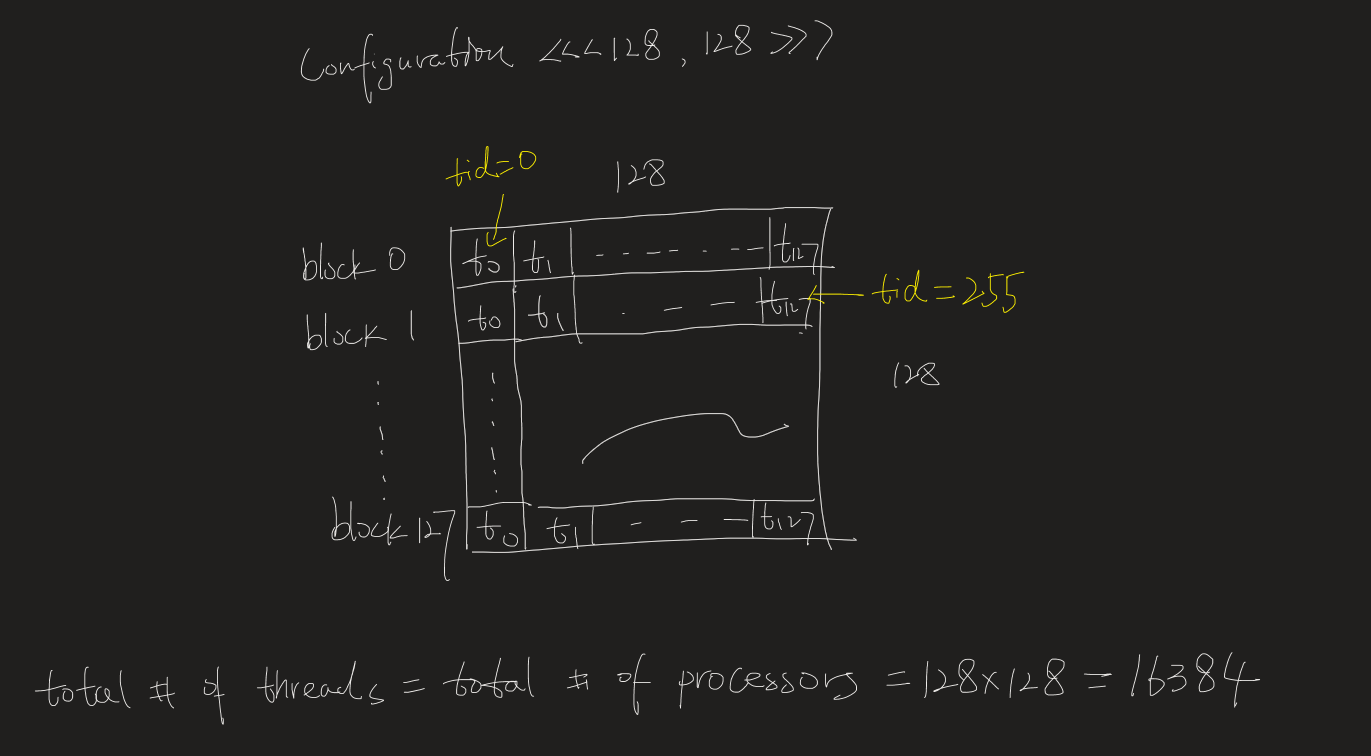 Configuration <<<128, 128>>>
tid=0
128
block 0 t0 t1 ------- t127
tid=255
block 1 t0 t1 . - - t127
128
block 127 t0 t1 - - - t127
total # of threads = total # of processors = 128×128 = 16384